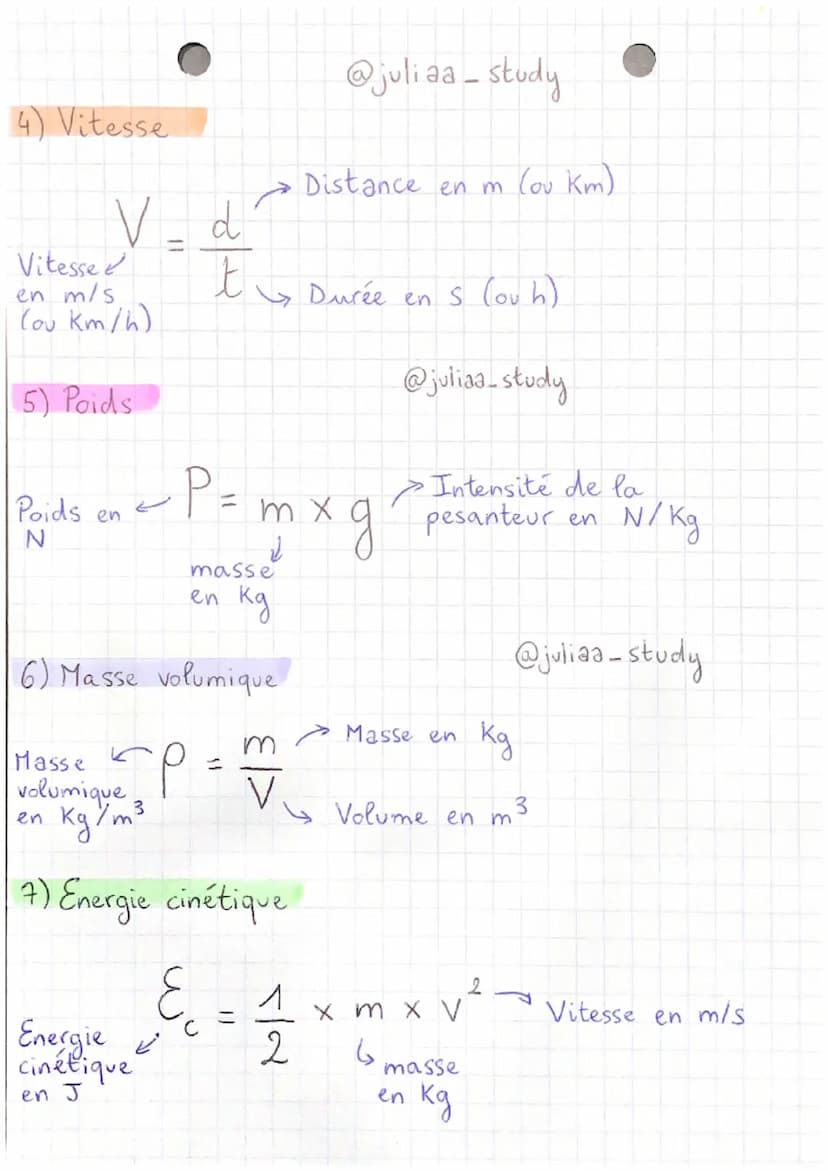 @juliaa_study
4) Vitesse
V = d/t
Distance en m (ou Km)
Vitesse
en m/s
(ou Km/h)
Durée en s (ou h)
@juliaa_study
5) Poids
P = m x g
Poids en
N
Intensité de la
pesanteur en N/Kg
masse
en Kg
@juliaa_study
6) Masse volumique
ρ = m/V
Masse en Kg
Masse
volumique
en Kg/m³
Volume en m³
7) Energie cinétique
Ec = 1/2 x m x v²
Vitesse en m/s
Energie
cinétique
en J
masse
en Kg